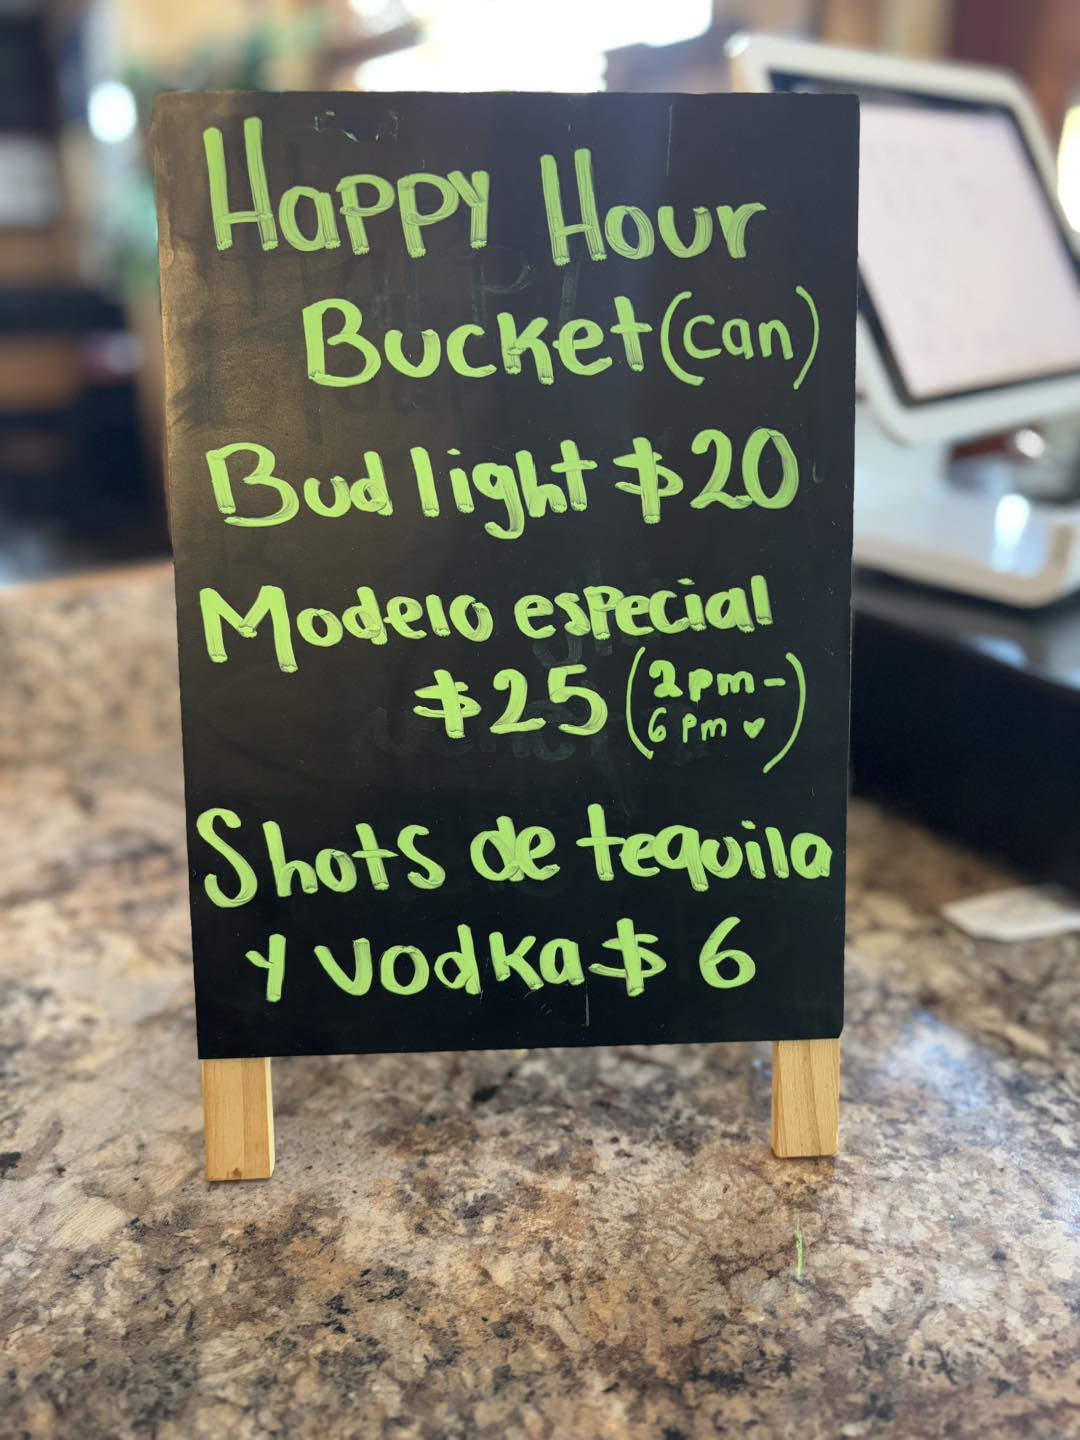 Happy Hour
Bucket (can)
Bud light $20
Modelo especial
$25 (2pm-
6 pm ♥)
Shots de tequila
y vodka $6